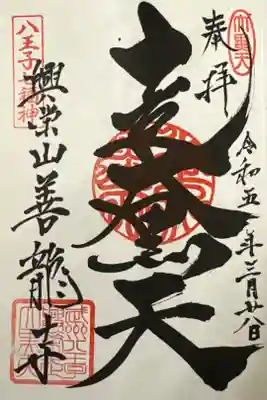 奉拝
令和五年三月廿八日
走大黒天
八王子七福神
興栄山善龍寺